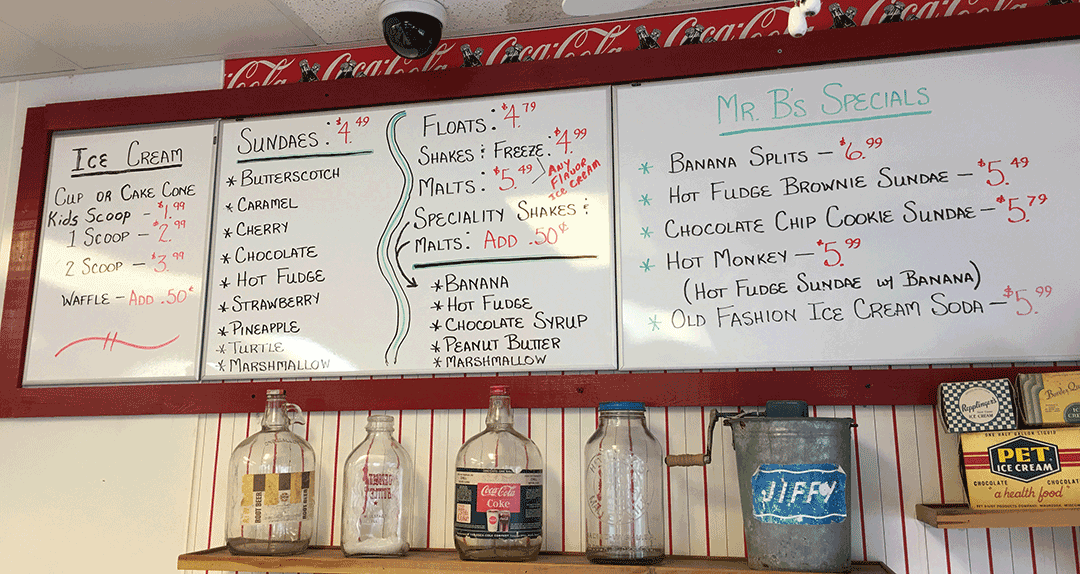 Coca-Cola Coca-Cola Coca-Cola Coca-Cola Coca-Cola
ICE CREAM
CUP OR CAKE CONE
KIDS SCOOP - $1.99
1 SCOOP - $2.99
2 SCOOP - $3.99
WAFFLE - ADD .50¢
SUNDAES: $4.49
* BUTTERSCOTCH
* CARAMEL
* CHERRY
* CHOCOLATE
* HOT FUDGE
* STRAWBERRY
* PINEAPPLE
* TURTLE
* MARSHMALLOW
FLOATS: $4.79
SHAKES & FREEZE: $4.99
MALTS: $5.49
ANY
FLAVOR
ICE CREAM
SPECIALITY SHAKES &
MALTS: ADD .50¢
* BANANA
* HOT FUDGE
* CHOCOLATE SYRUP
* PEANUT BUTTER
* MARSHMALLOW
MR. B'S SPECIALS
* BANANA SPLITS - $6.99
* HOT FUDGE BROWNIE SUNDAE - $5.49
* CHOCOLATE CHIP COOKIE SUNDAE - $5.79
* HOT MONKEY - $5.99
(HOT FUDGE SUNDAE W/ BANANA)
* OLD FASHION ICE CREAM SODA - $5.99
ROOT BEER
Coca-Cola
Coke
JIFFY
ICE CREAM
ONE HALF GALLON LIQUID
PET
ICE CREAM
CHOCOLATE CHOCOLAT
a health food